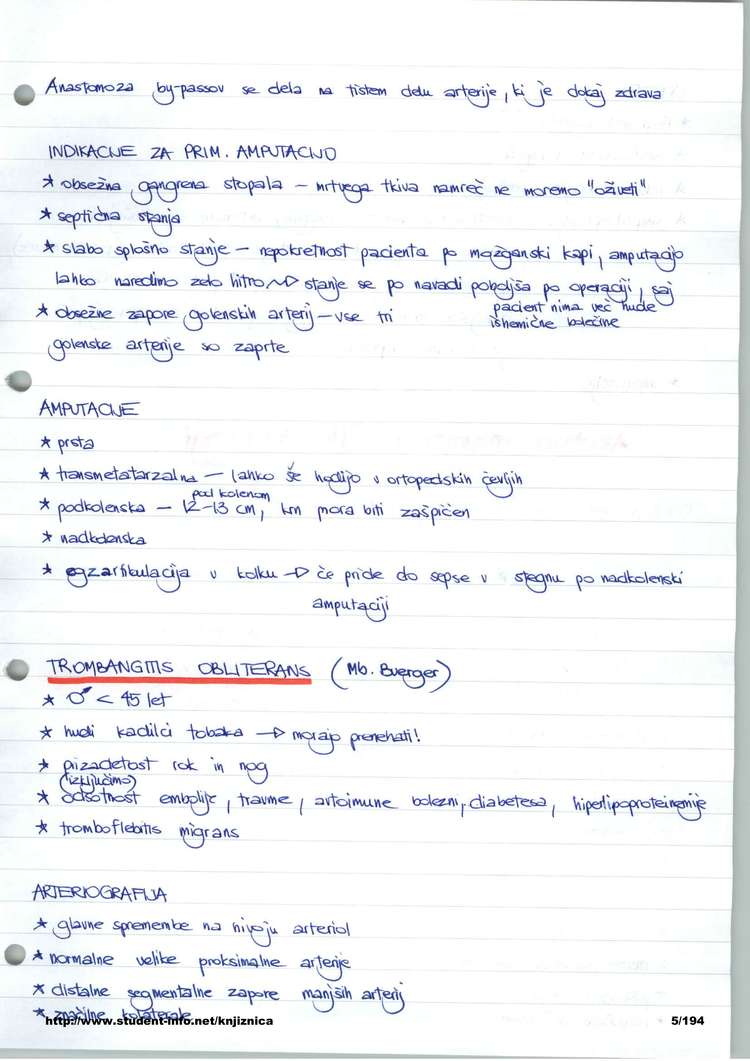 Anastomoza by-passov se dela na tistem delu arterije, ki je dokaj zdrava
INDIKACIJE ZA PRIM. AMPUTACIJO
* obsežna gangrena stopala – mrtvega tkiva namreč ne moremo "oživeti"
* septična stanja
* slabo splošno stanje – nepokretnost pacienta po možganski kapi, amputacijo
lahko naredimo zelo hitro → stanje se po navadi poboljša po operaciji, saj
pacient nima več hude
ishemične bolečine
* obsežne zapore golenskih arterij – vse tri
golenske arterije so zaprte
AMPUTACIJE
* prsta
* transmetatarzalna – lahko še hodijo v ortopedskih čevljih
* podkolenska – 12-13 cm, krn mora biti zašpičen
pod kolenom
* nadkolenska
* egzartikulacija v kolku → če pride do sepse v stegnu po nadkolenski
amputaciji
TROMBANGITIS OBLITERANS (Mb. Buerger)
* ♂ < 45 let
* hudi kadilci tobaka → morajo prenehati!
* prizadetost rok in nog
(izključimo)
* odsotnost embolije, travme, avtoimune bolezni, diabetesa, hiperlipoproteinemije
* tromboflebitis migrans
ARTERIOGRAFIJA
* glavne spremembe na nivoju arteriol
* normalne velike proksimalne arterije
* distalne segmentalne zapore manjših arterij
* značilne kolaterale
http://www.student-info.net/knjiznica
5/194